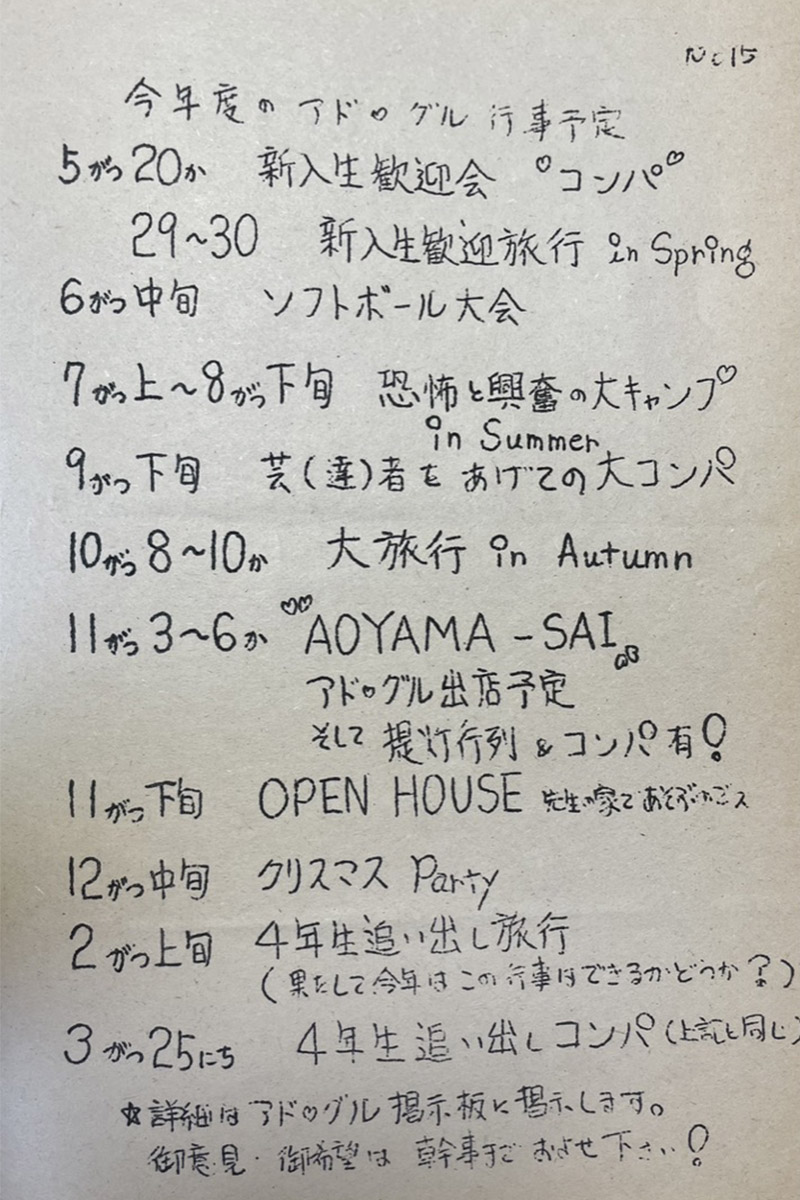 No 15
今年度の アド♡グル 行事予定
5がつ20か 新入生歓迎会 ♡コンパ♡
29~30 新入生歓迎旅行 in Spring
6がつ中旬 ソフトボール大会
7がつ上~8がつ下旬 恐怖と興奮の大キャンプ♡
in Summer
9がつ下旬 芸(達)者をあげての大コンパ
10がつ8~10か 大旅行 in Autumn
11がつ3~6か ♡♡AOYAMA-SAI♡♡
アド♡グル出店予定
そして提灯行列&コンパ有!
11がつ下旬 OPEN HOUSE 先生の家であそぶのでごス
12がつ中旬 クリスマス Party
2がつ上旬 4年生追い出し旅行
(果たして今年はこの行事はできるかどうか?)
3がつ25にち 4年生追い出しコンパ(上記と同じ)
☆詳細はアド♡グル掲示板に掲示します。
御意見・御希望は幹事までおよせ下さい!